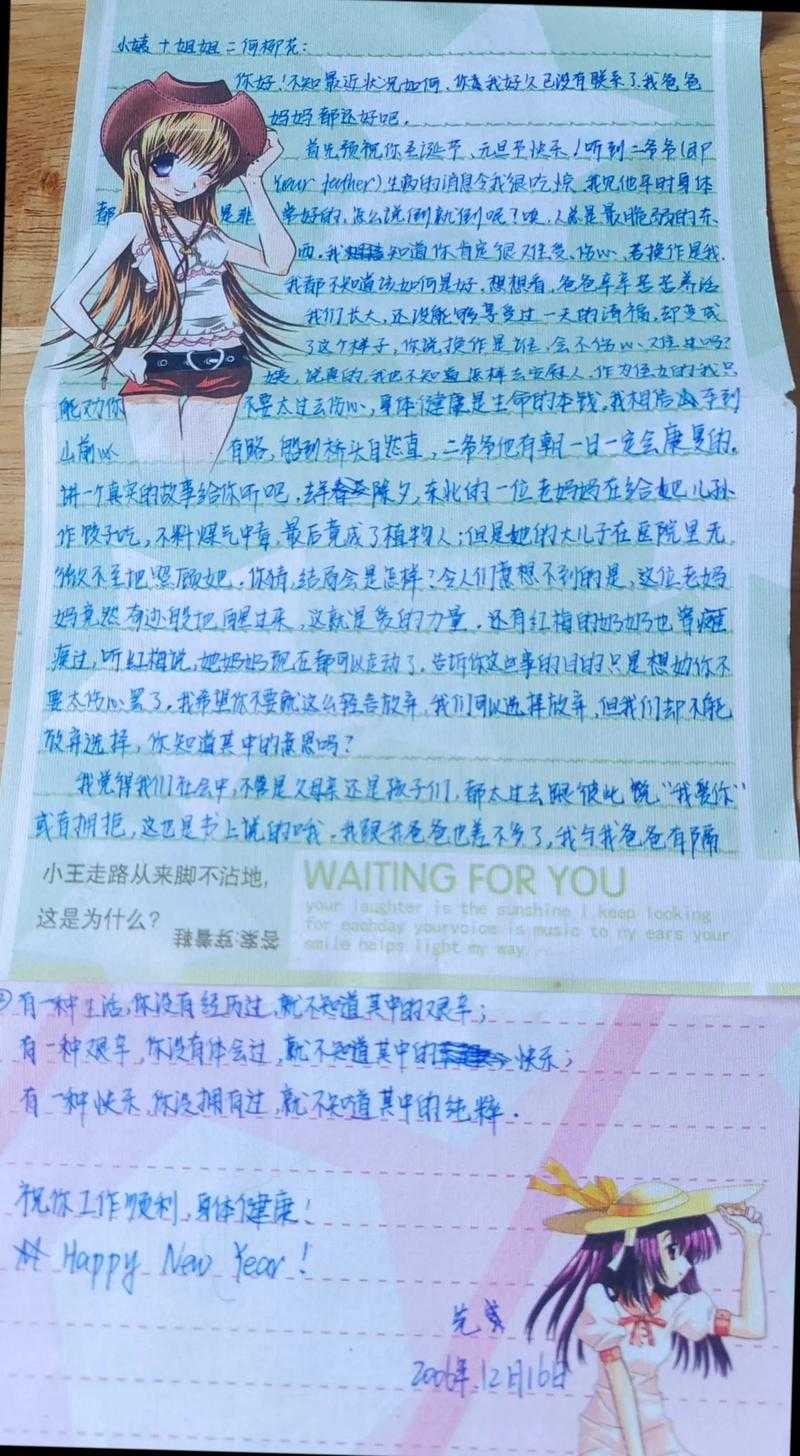 小姨+姐姐=何柳花:
你好!不知最近状况如何,你我好久已没有联系了.我爸爸
妈妈都还好吧。
首先预祝你圣诞节、元旦节快乐!听到二爷爷(即
your father)生病的消息令我很吃惊,我见他平时身体
都是非常好的,怎么说倒就倒呢?唉,人总是最脆弱的东
西.我知道你肯定很难受、伤心,若换作是我.
我都不知道该如何是好.想想看,爸爸辛辛苦苦养活
我们长大,还没能够享受过一天的清福,却变成
了这个样子,你说换作是谁,会不伤心、难过吗?
姨,说真的,我也不知道怎样去安慰人.作为侄女的我只
能劝你不要太过去伤心,身体健康是生命的本钱,我相信车到
山前必有路,船到桥头自然直,二爷爷他有朝一日一定会康复的.
讲一个真实的故事给你听吧,去年除夕,东北的一位老妈妈在给她儿孙
作饺子吃,不料煤气中毒,最后竟成了植物人;但是她的大儿子在医院里无
微不至把照顾她.你猜,结局会是怎样?令人们意想不到的是,这位老妈
妈竟然奇迹般把醒过来,这就是爱的力量.还有红梅的奶奶也曾瘫
痪过,听红梅说,她奶奶现在都可以走动了.告诉你这些事的目的只是想劝你不
要太伤心罢了.我希望你不要就这么轻言放弃,我们可以选择放弃,但我们却不能
放弃选择,你知道其中的意思吗?
我觉得我们社会中,不管是父母亲还是孩子们,都太过去跟彼此说"我爱你"
或有拥抱,这也是书上说的哦.我跟我爸爸也差不多了,我与我爸爸有隔
小王走路从来脚不沾地,
这是为什么?
WAITING FOR YOU
your laughter is the sunshine I keep looking
for eachday yourvoice is music to my ears your
smile helps light my way
②有一种生活,你没有经历过,就不知道其中的艰辛;
有一种艰辛,你没有体会过,就不知道其中的快乐;
有一种快乐,你没拥有过,就不知道其中的纯粹.
祝你工作顺利,身体健康!
Happy New Year!
2006年.12月16日